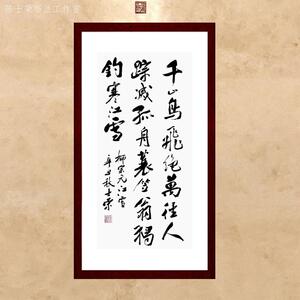 千山鳥飛絕萬徑人
踪滅孤舟蓑笠翁獨
釣寒江雪
柳宗元江雪
辛丑秋士榮